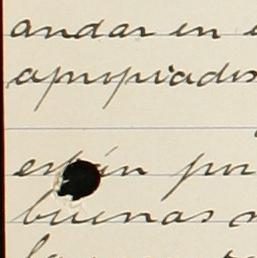 andar en
apropiados
están por
buenas